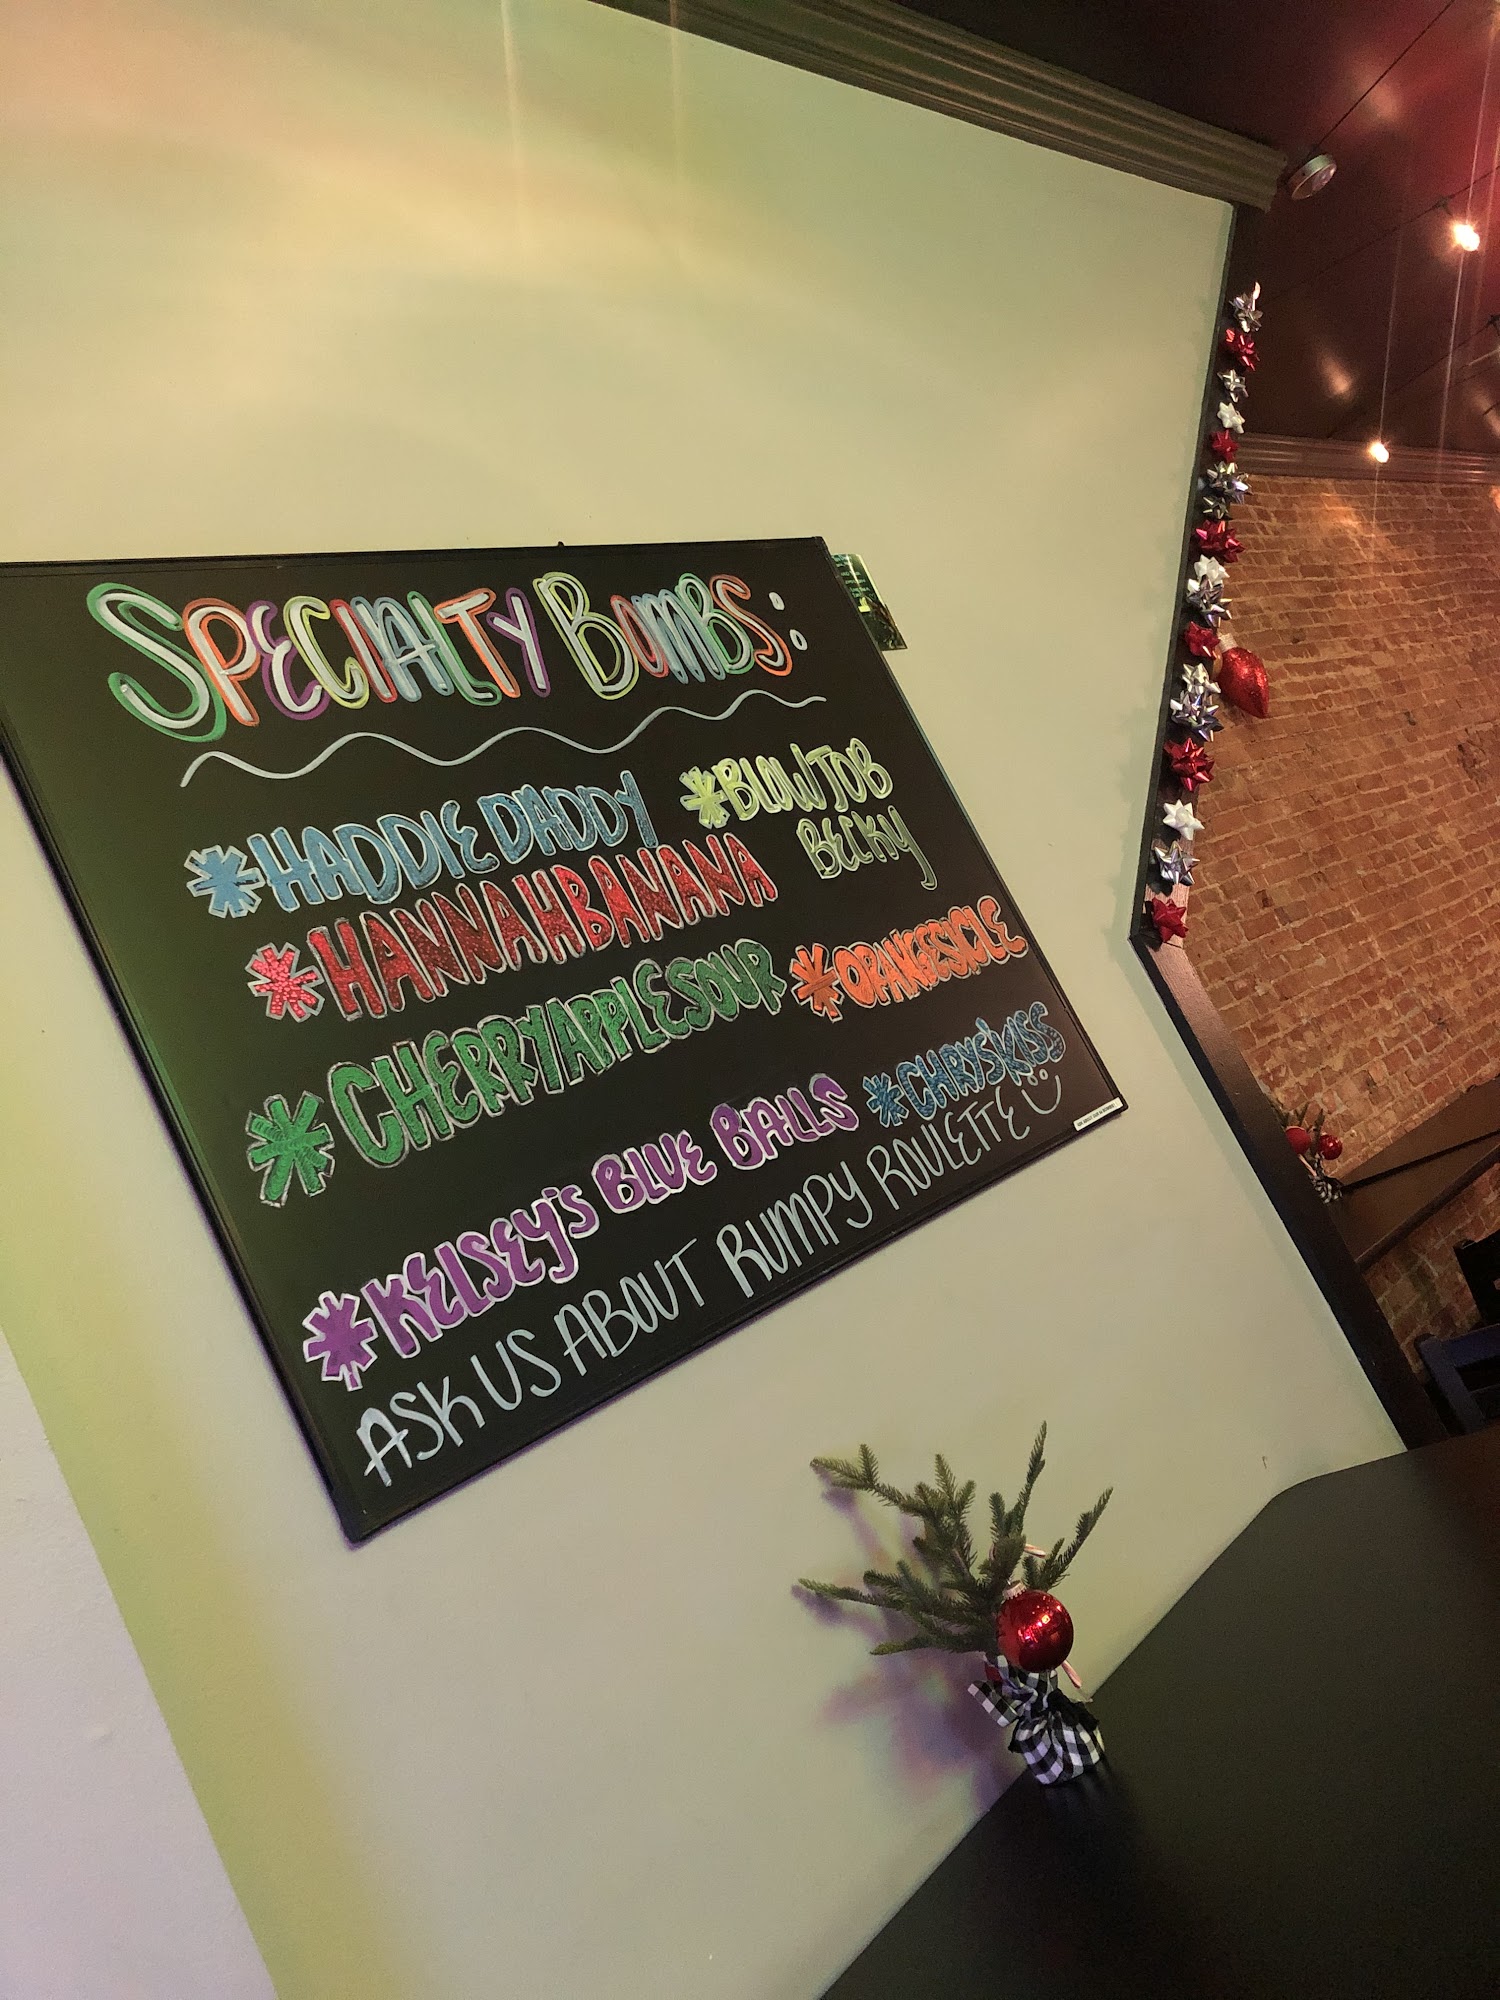 SPECIALTY BOMBS:
*HADDIE DADDY
*BLOWJOB
BECKY
*HANNAHBANANA
*ORANGESICLE
*CHERRYAPPLESOUR
*CHRYS'KISS
*KELSEY'S BLUE BALLS
ASK US ABOUT RUMPY ROULETTE